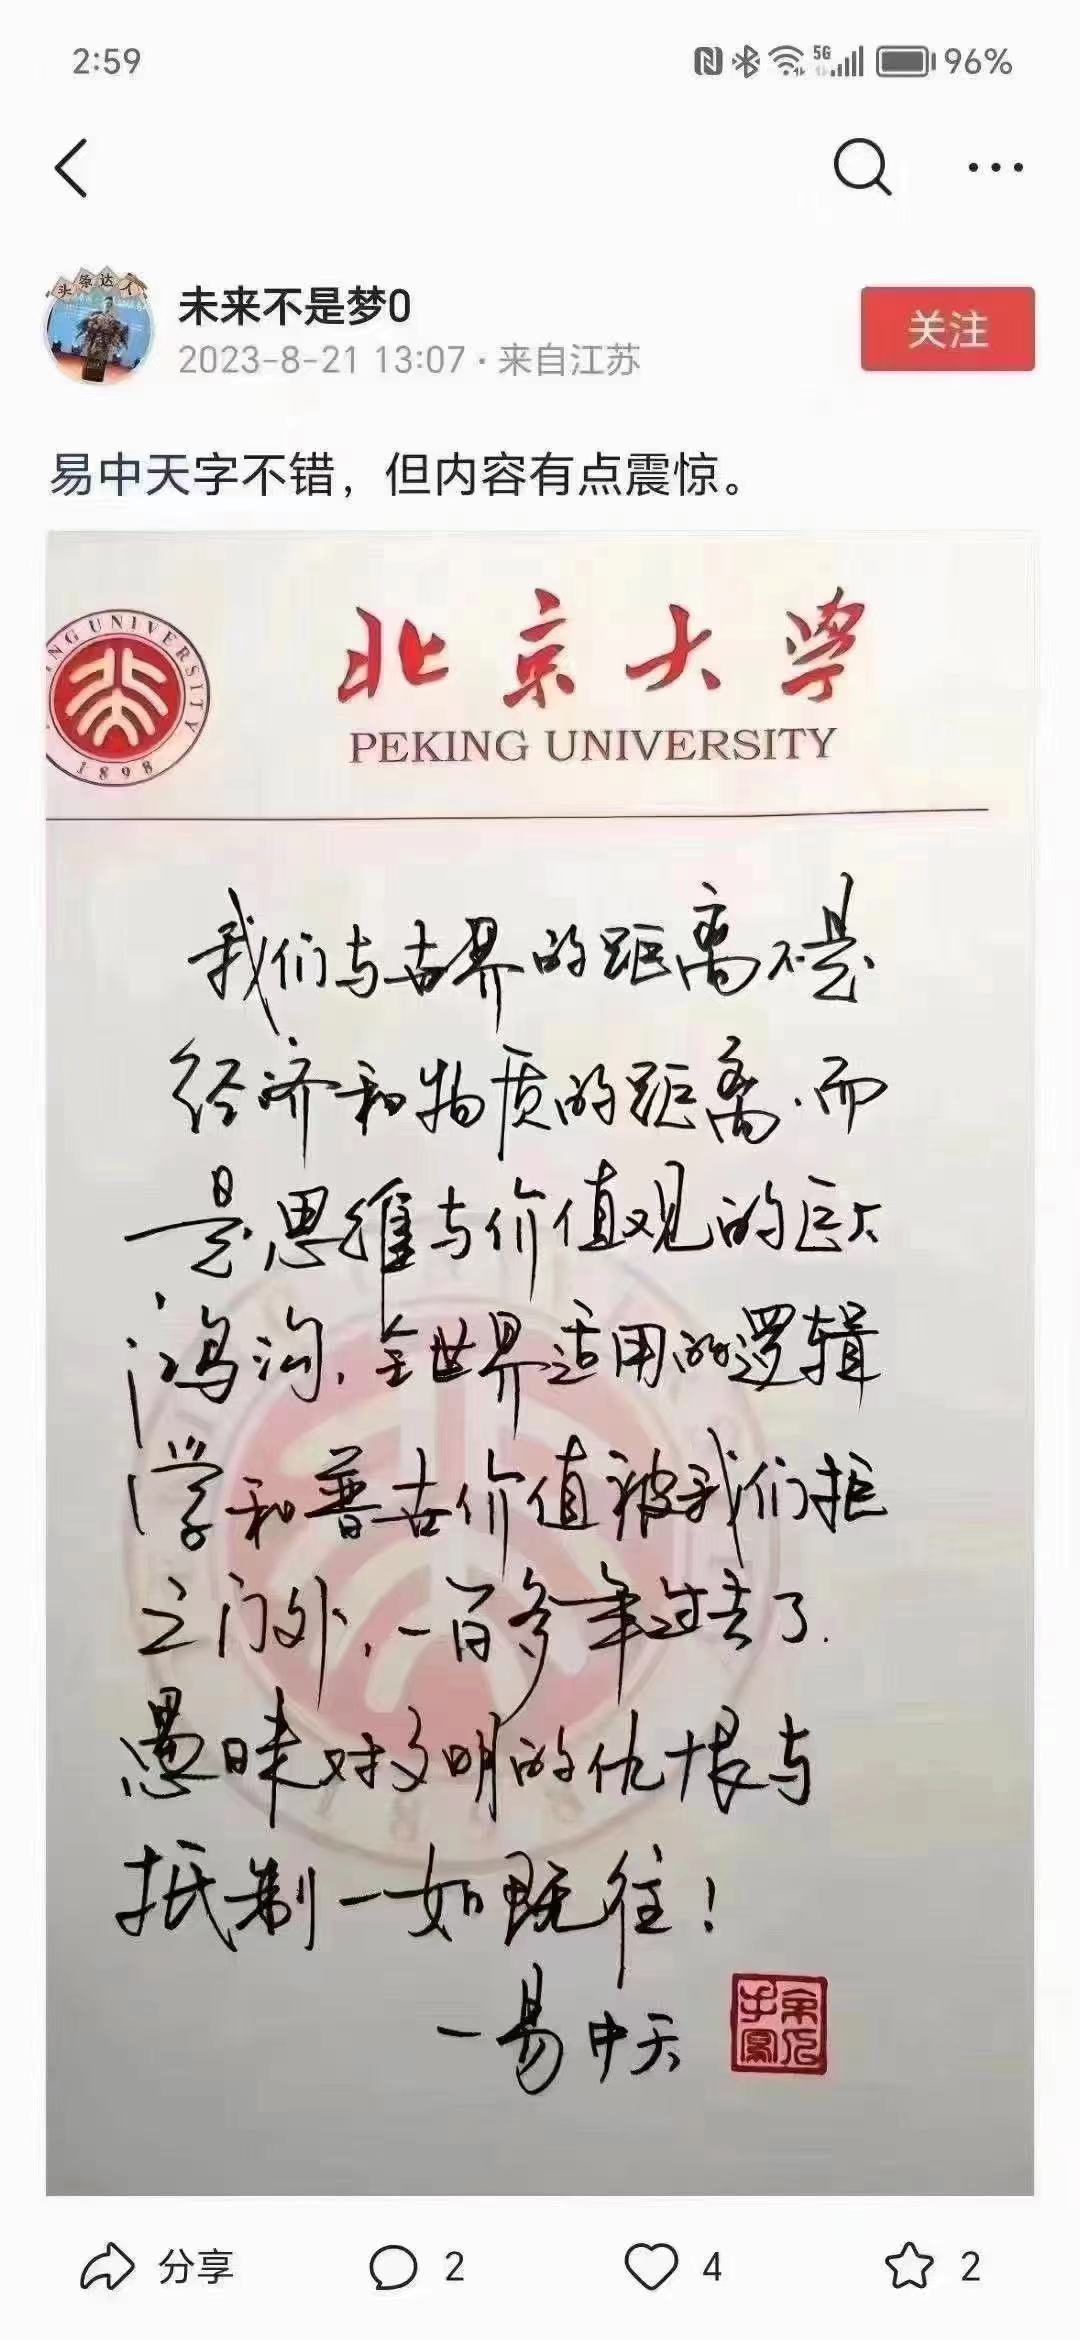 2:59
5G
96%
未来不是梦0
关注
2023-8-21 13:07 · 来自江苏
易中天字不错，但内容有点震惊。
北京大学
PEKING UNIVERSITY
1898
我们与世界的距离不是
经济和物质的距离.而
是思维与价值观的巨大
鸿沟.全世界适用的逻辑
学和普世价值被我们拒
之门外.一百多年过去了.
愚昧对文明的仇恨与
抵制一如既往!
一易中天
分享
2
4
2